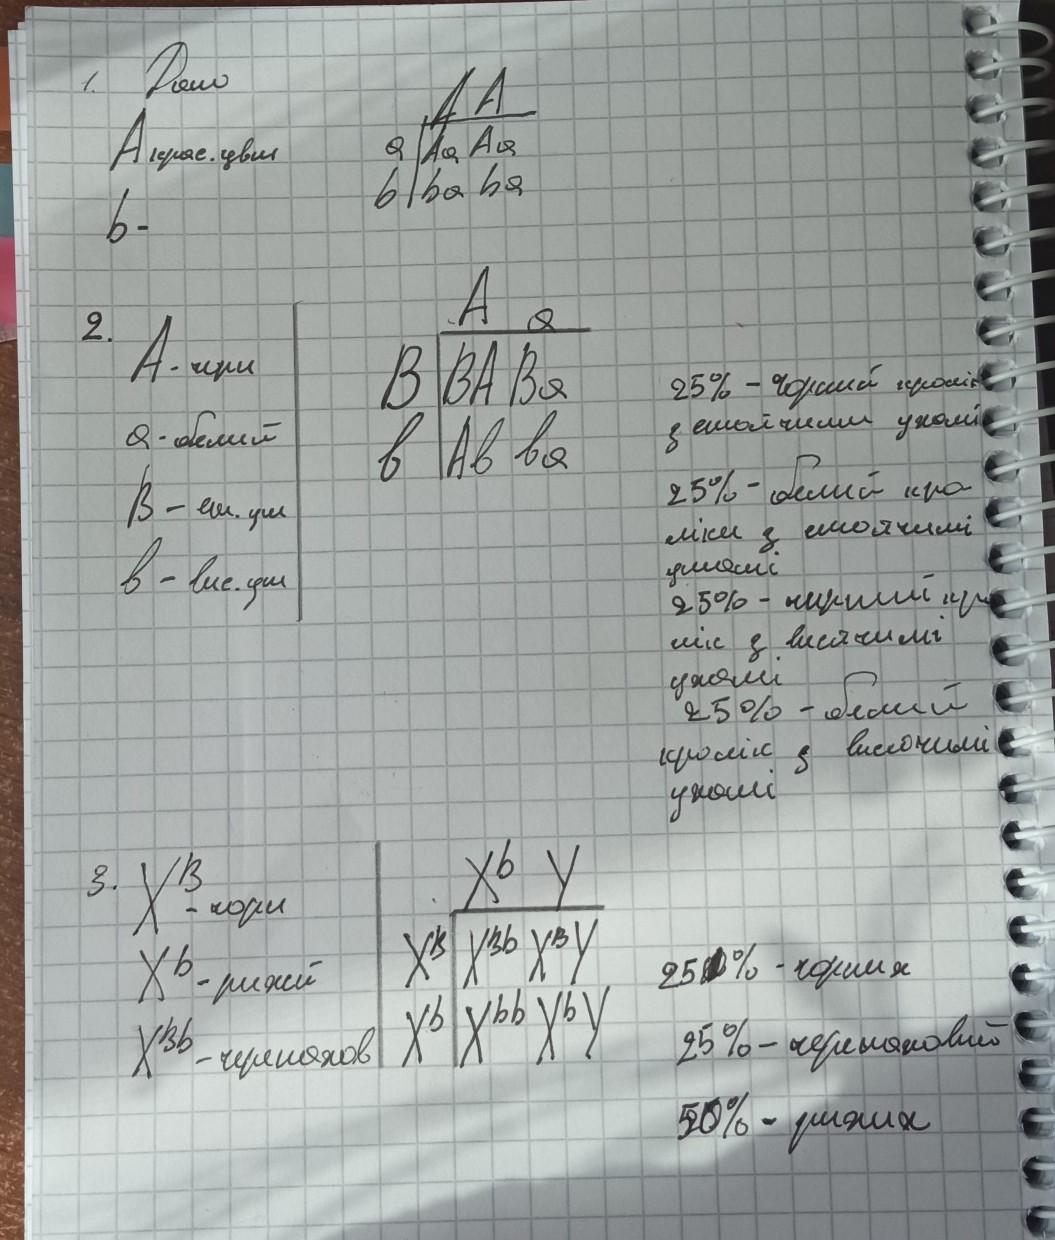 1. Дано
A крас. цвіт
b -
A A
a Aa Aa
b ba ba
2.
A - чорн
a - белий
B - ст. уш
b - вис. уш
A a
B BA Ba
b Ab ba
25% - чорний кролік
з стоячими ухамі
25% - белий кро
ліки з стоячимі
ушамі
25% - чорний кро
лік з висячимі
ухамі
25% - белий
кролік з висячимі
ухамі
3. X^B - чорн
X^b - рижй
X^Bb - черепахов
X^b Y
X^B X^Bb X^B Y
X^b X^bb X^b Y
25% - чорних
25% - черепаховий
50% - рижих